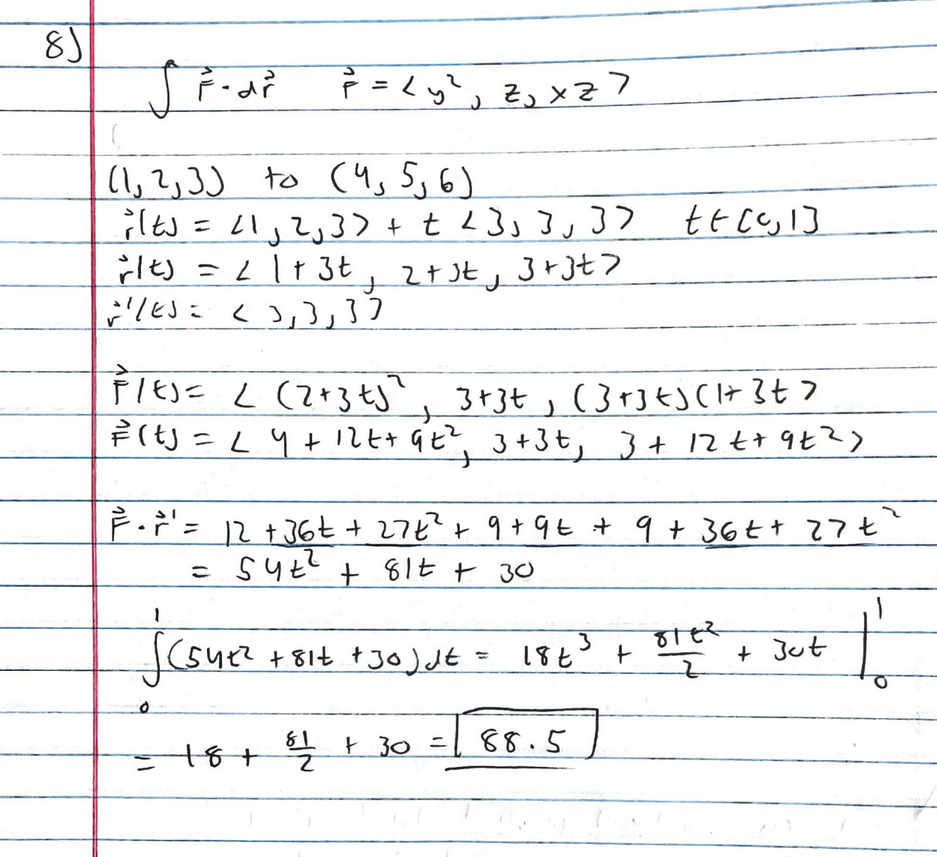 8)
∫ F⃗ · dr⃗ F⃗ = <y², z, xz>
(1,2,3) to (4,5,6)
r⃗(t) = <1,2,3> + t <3,3,3> t∈[0,1]
r⃗(t) = <1+3t, 2+3t, 3+3t>
r⃗'(t) = <3,3,3>
F⃗(t) = <(2+3t)², 3+3t, (3+3t)(1+3t>
F⃗(t) = <4+12t+9t², 3+3t, 3+12t+9t²>
F⃗ · r⃗' = 12+36t+27t²+9+9t+9+36t+27t²
= 54t² + 81t + 30
∫₀¹ (54t² + 81t + 30)dt = 18t³ + 81t²/2 + 30t |₀¹
= 18 + 81/2 + 30 = 88.5